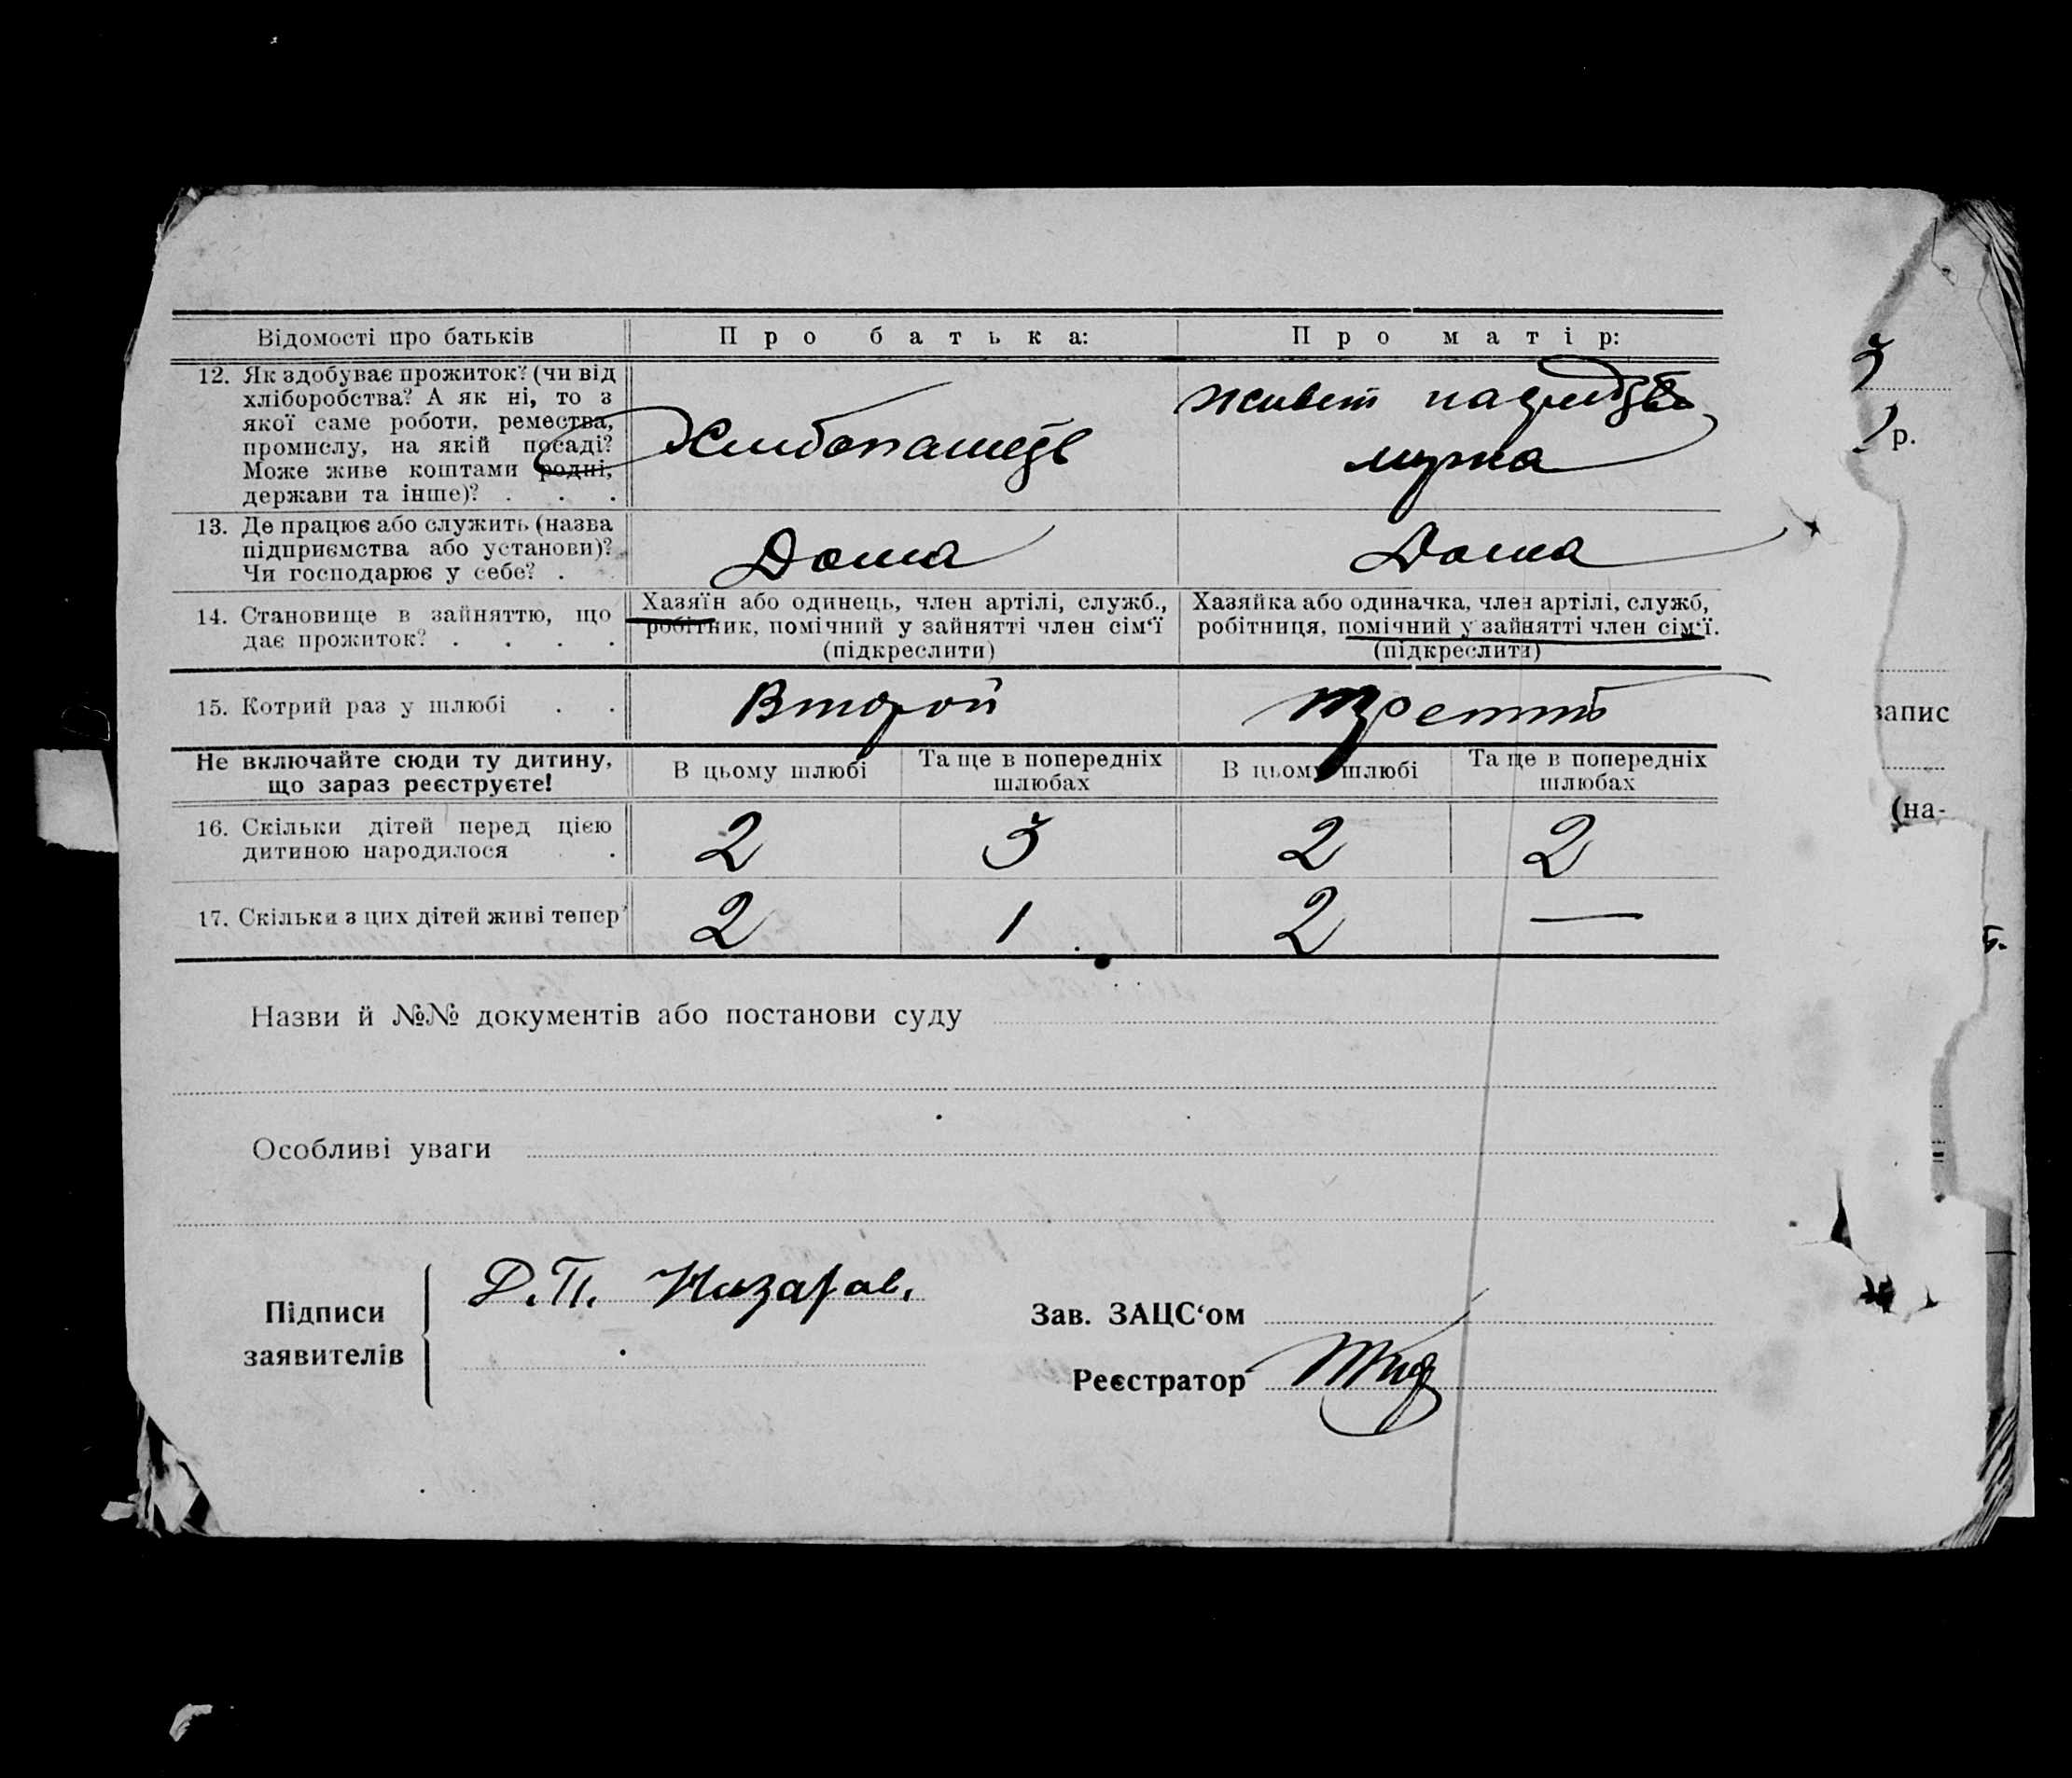 Відомості про батьків
Про батька:
Про матір:
12. Як здобуває прожиток? (чи від
хліборобства? А як ні, то з
якої саме роботи, ремества,
промислу, на якій посаді?
Може живе коштами родні,
держави та інше)? . . .
Хлибопашець
живет на
мужа
13. Де працює або служить (назва
підприємства або установи)?
Чи господарює у себе? .
Дома
Дома
14. Становище в зайняттю, що
дає прожиток? . . . .
Хазяїн або одинець, член артілі, служб.,
робітник, помічний у зайнятті член сім‘ї
(підкреслити)
Хазяйка або одиначка, член артілі, служб,
робітниця, помічний у зайнятті член сім‘ї.
(підкреслити)
15. Котрий раз у шлюбі . .
Второй
Не включайте сюди ту дитину,
що зараз реєструєте!
В цьому шлюбі
Та ще в попередніх
шлюбах
В цьому шлюбі
Та ще в попередніх
шлюбах
16. Скільки дітей перед цією
дитиною народилося .
2
3
2
2
17. Скільки з цих дітей живі тепер?
2
1
2
—
Назви й №№ документів або постанови суду
Особливі уваги
Підписи
заявителів
Д.П. Назаров.
Зав. ЗАЦС‘ом
Реєстратор
р.
запис
(на-